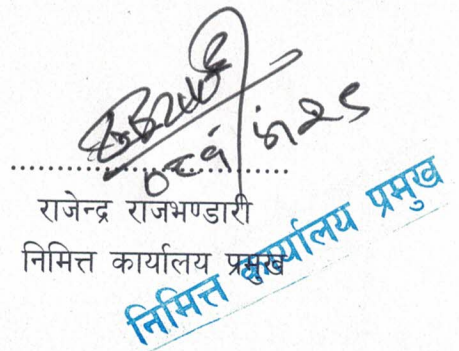 राजेन्द्र राजभण्डारी
निमित्त कार्यालय प्रमुख
निमित्त कार्यालय प्रमुख